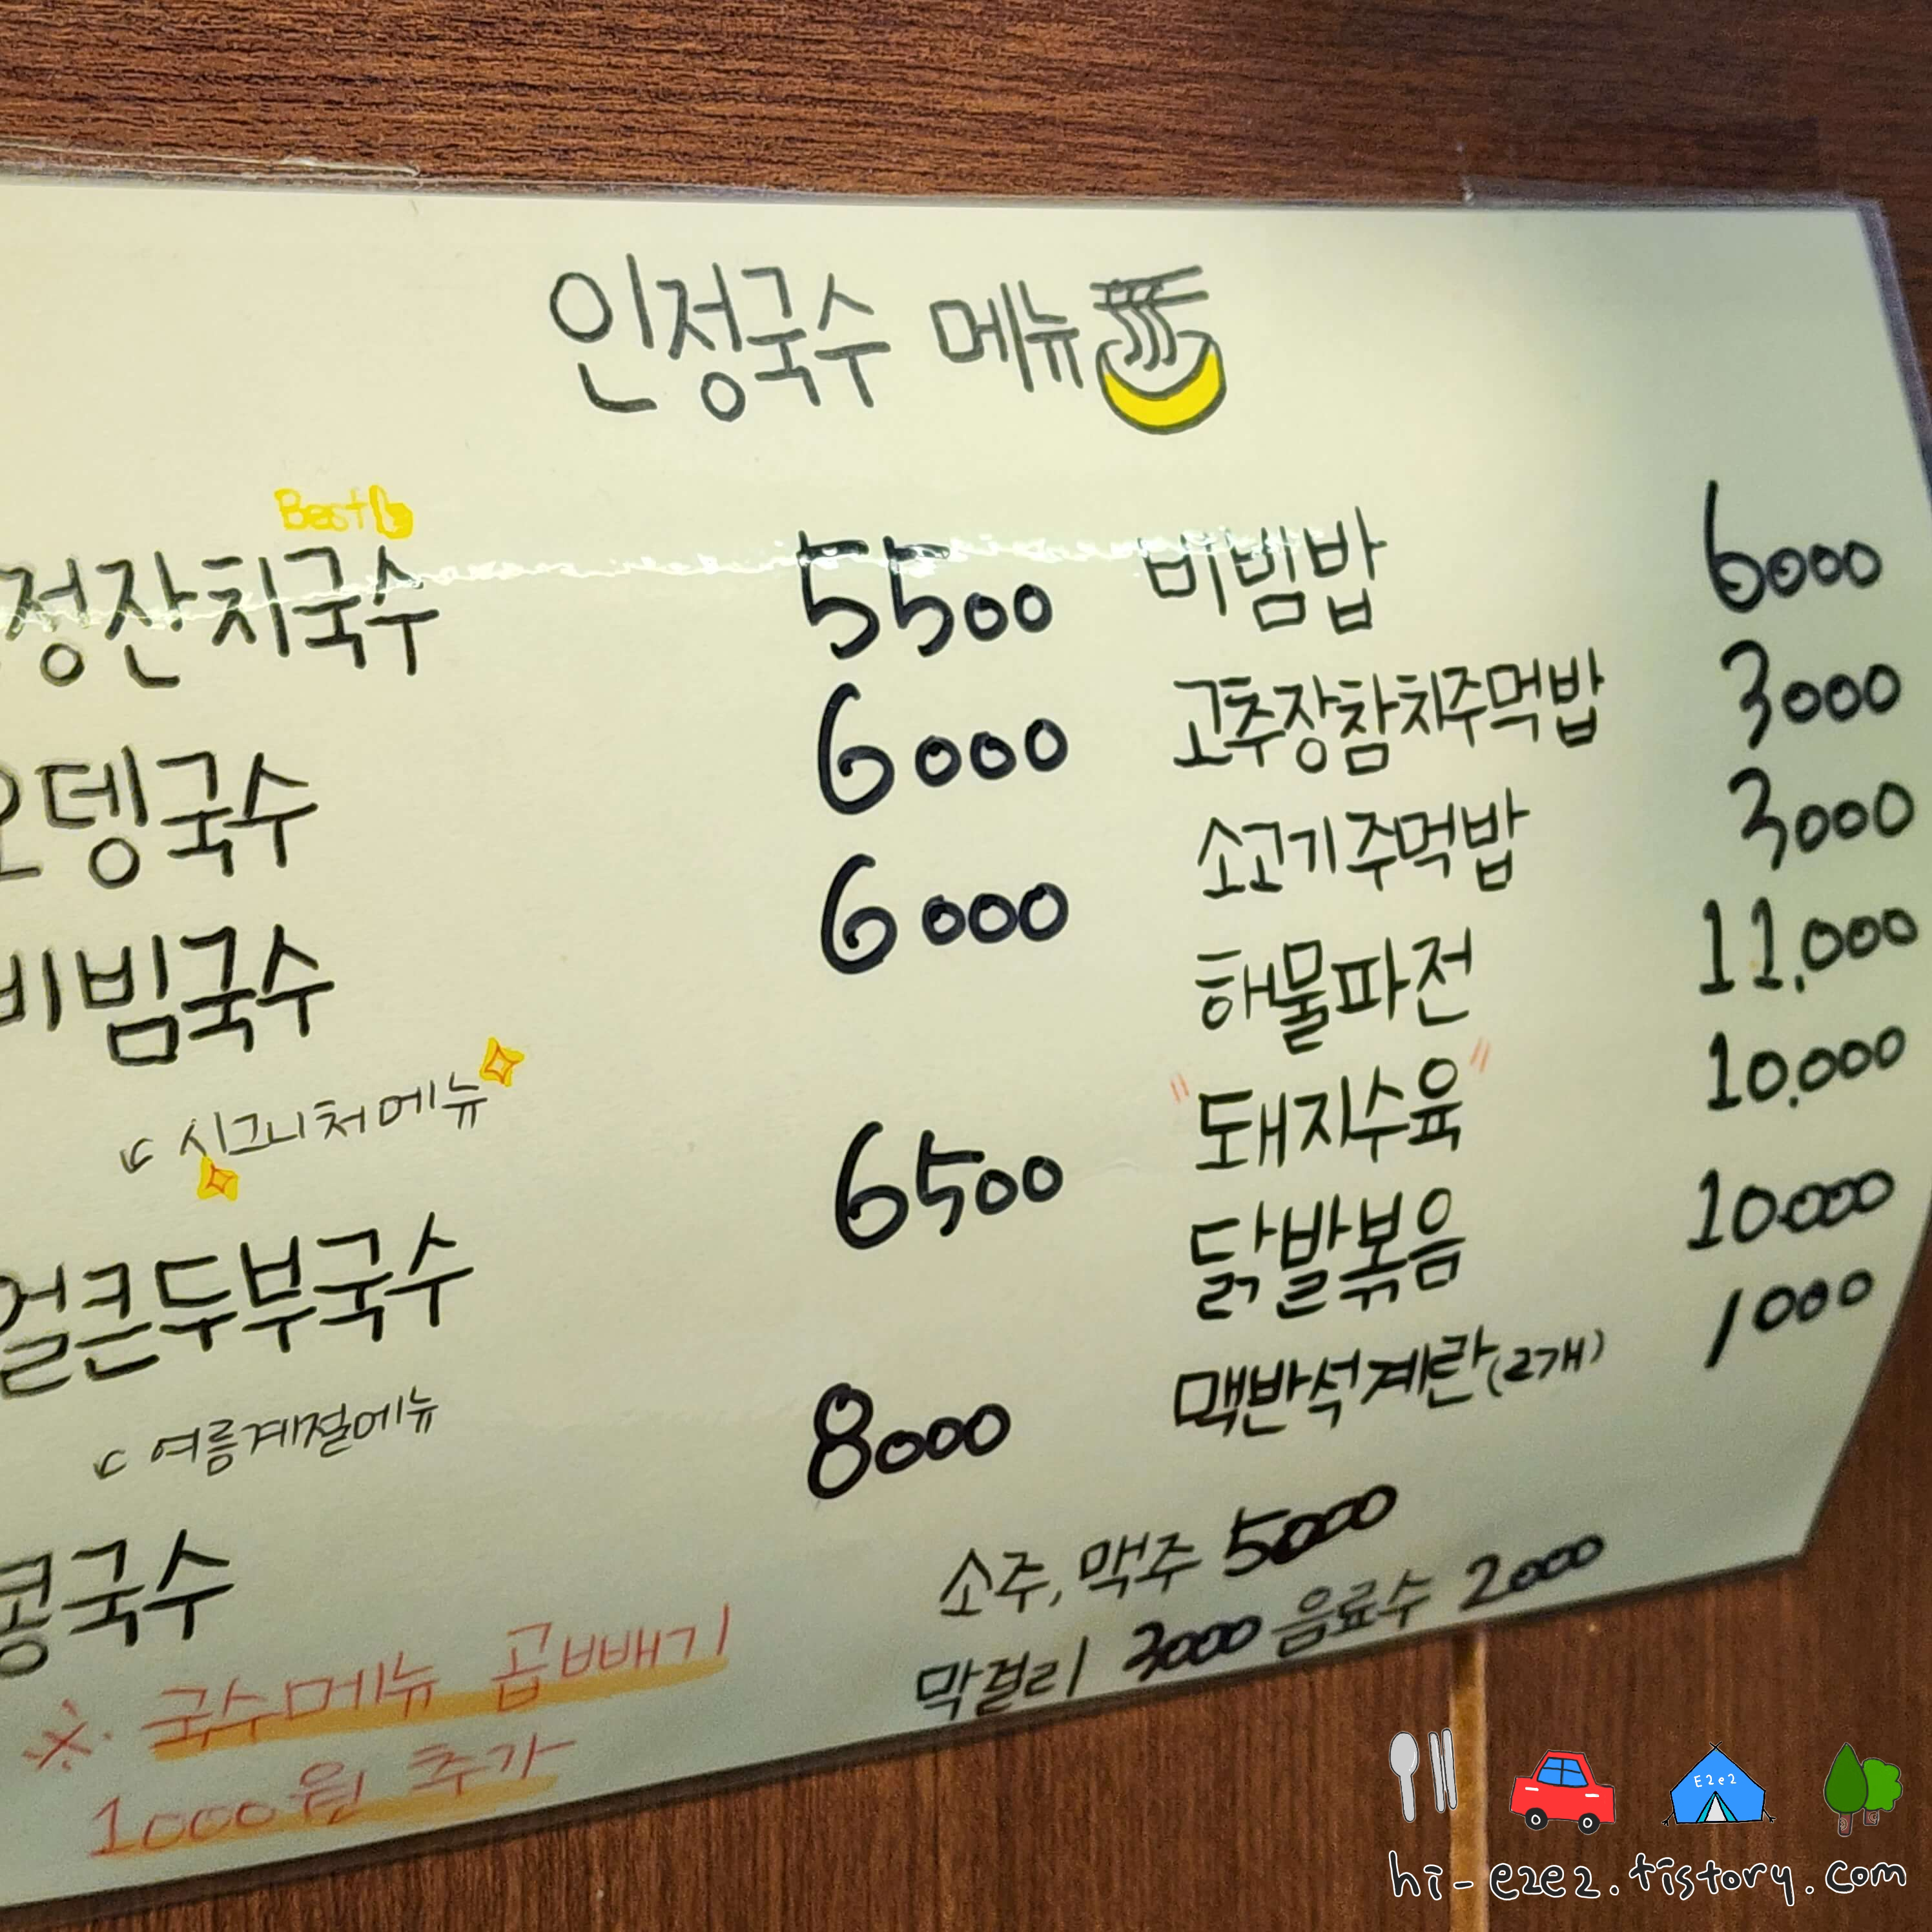 인정국수 메뉴
Best
정잔치국수 5500
오뎅국수 6000
비빔국수 6000
시그니처메뉴
얼큰두부국수 6500
여름계절메뉴
콩국수 8000
※ 국수메뉴 곱빼기
1000원 추가
비빔밥 6000
고추장참치주먹밥 3000
소고기주먹밥 3000
해물파전 11,000
"돼지수육" 10,000
닭발볶음 10.000
맥반석계란(2개) 1000
소주, 맥주 5000
막걸리 3000 음료수 2000
E2e2
hi-e2e2.tistory.com